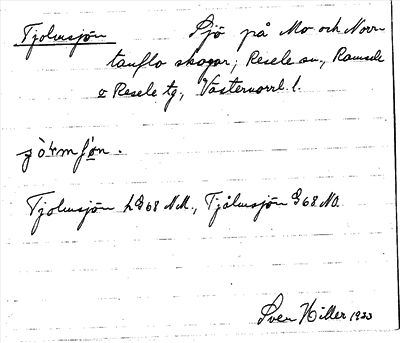 Tjolmsjön Sjö på Mo och Norr-
tanflo skogar; Resele sn, Ramsele
o Resele tg, Västernorrl. l.
Tjolmsjön h 68 N.M., Tjålmsjön G 68 NO.
Sven Hiller 1933